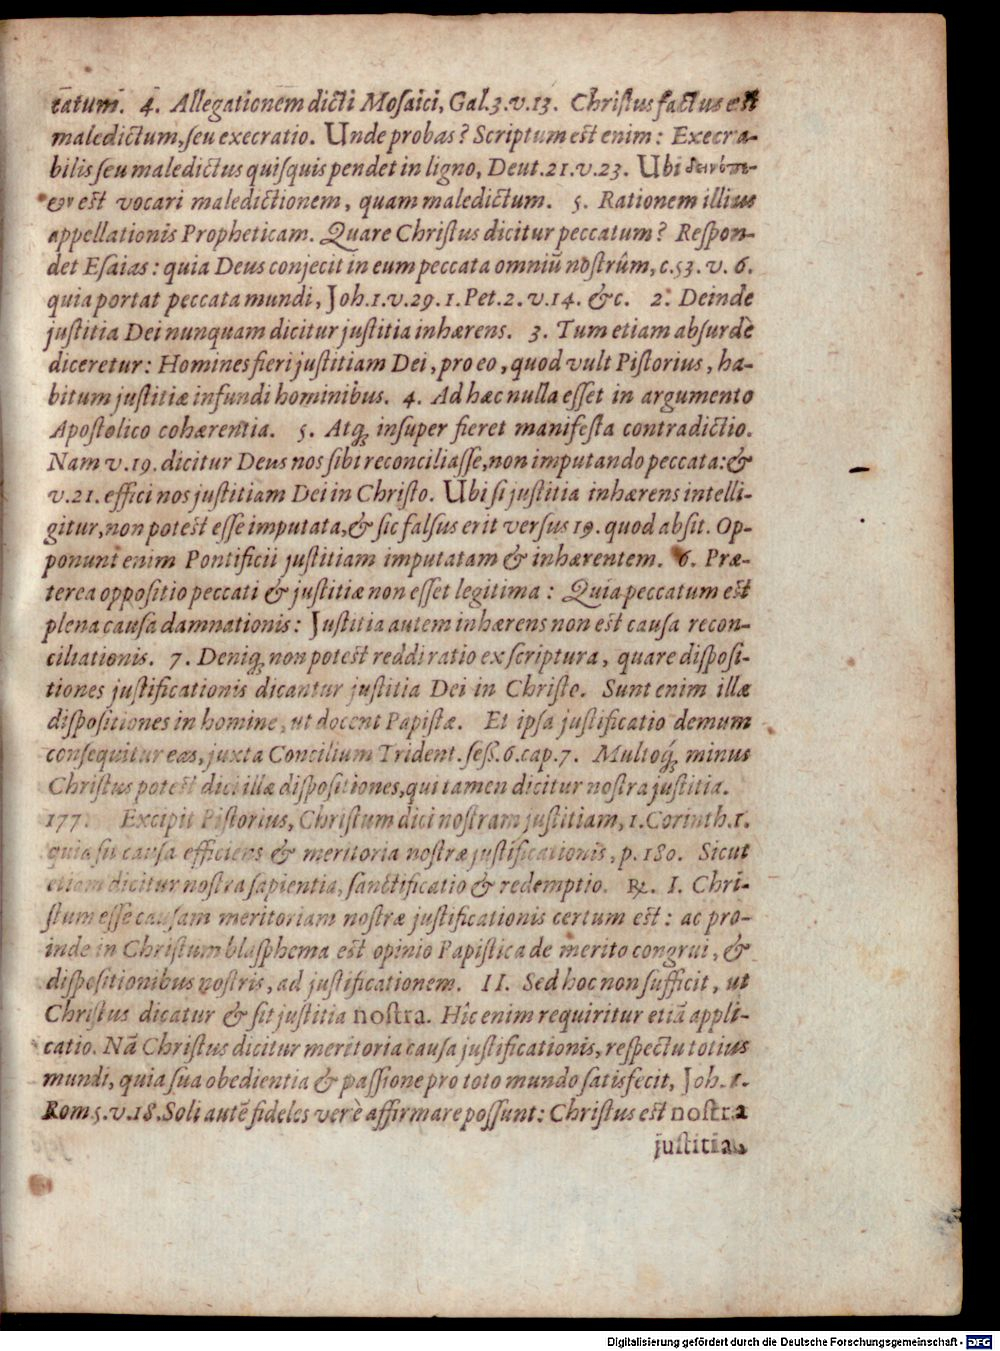 tātum. 4. Allegationem dicti Mosaici, Gal.3.v.13. Christus factus est
maledictum, seu execratio. Unde probas? Scriptum est enim: Execra-
bilis seu maledictus quisquis pendet in ligno, Deut.21.v.23. Ubi
est vocari maledictionem, quam maledictum. 5. Rationem illius
appellationis Propheticam. Quare Christus dicitur peccatum? Respon-
det Esaias: quia Deus conjecit in eum peccata omniū nostrûm, c.53. v. 6.
quia portat peccata mundi, Joh.1.v.29.1.Pet.2.v.14. &c. 2. Deinde
justitia Dei nunquam dicitur justitia inhærens. 3. Tum etiam absurdè
diceretur: Homines fieri justitiam Dei, pro eo, quod vult Pistorius, ha-
bitum justitiæ infundi hominibus. 4. Ad hæc nulla esset in argumento
Apostolico cohærentia. 5. Atq; insuper fieret manifesta contradictio.
Nam v.19. dicitur Deus nos sibi reconciliasse, non imputando peccata: &
v.21. effici nos justitiam Dei in Christo. Ubi si justitia inhærens intelli-
gitur, non potest esse imputata, & sic falsus erit versus 19. quod absit. Op-
ponunt enim Pontificii justitiam imputatam & inhærentem. 6. Præ-
terea oppositio peccati & justitiæ non esset legitima: Quia peccatum est
plena causa damnationis: Justitia autem inhærens non est causa recon-
ciliationis. 7. Deniq; non potest reddi ratio ex scriptura, quare disposi-
tiones justificationis dicantur justitia Dei in Christo. Sunt enim illæ
dispositiones in homine, ut docent Papistæ. Et ipsa justificatio demum
consequitur eas, juxta Concilium Trident. sess.6.cap.7. Multoq; minus
Christus potest dici illæ dispositiones, qui tamen dicitur nostra justitia.
177. Excipit Pistorius, Christum dici nostram justitiam, 1.Corinth.1.
quia sit causa efficiens & meritoria nostræ justificationis, p.180. Sicut
etiam dicitur nostra sapientia, sanctificatio & redemptio. ℞. I. Chri-
stum esse causam meritoriam nostræ justificationis certum est: ac pro-
inde in Christum blasphema est opinio Papistica de merito congrui, &
dispositionibus nostris, ad justificationem. II. Sed hoc non sufficit, ut
Christus dicatur & sit justitia nostra. Hîc enim requiritur etiā appli-
catio. Nā Christus dicitur meritoria causa justificationis, respectu totius
mundi, quia sua obedientia & passione pro toto mundo satisfecit, Joh.1.
Rom 5.v.18. Soli autē fideles verè affirmare possunt: Christus est nostra
justitia.
Digitalisierung gefördert durch die Deutsche Forschungsgemeinschaft - DFG